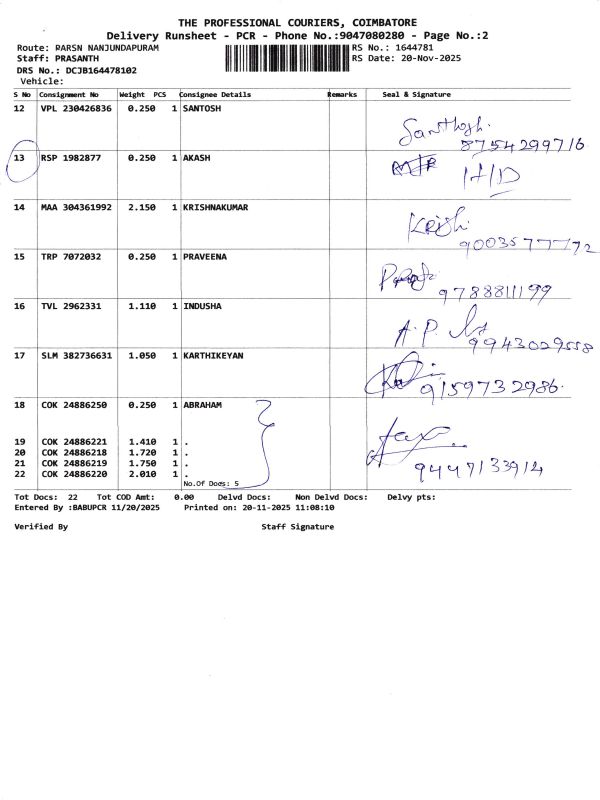 THE PROFESSIONAL COURIERS, COIMBATORE
Delivery Runsheet - PCR - Phone No.:9047080280 - Page No.:2
Route: RARSN NANJUNDAPURAM RS No.: 1644781
Staff: PRASANTH RS Date: 20-Nov-2025
DRS No.: DCJB164478102
Vehicle:
S No Consignment No Weight PCS Consignee Details Remarks Seal & Signature
12 VPL 230426836 0.250 1 SANTOSH
Santhosh.
8754299716
13 RSP 1982877 0.250 1 AKASH
H/D
14 MAA 304361992 2.150 1 KRISHNAKUMAR
Krish
9003577772
15 TRP 7072032 0.250 1 PRAVEENA
9788811199
16 TVL 2962331 1.110 1 INDUSHA
A.P.
9943029558
17 SLM 382736631 1.050 1 KARTHIKEYAN
9159732986.
18 COK 24886250 0.250 1 ABRAHAM
19 COK 24886221 1.410 1 .
20 COK 24886218 1.720 1 .
21 COK 24886219 1.750 1 .
22 COK 24886220 2.010 1 .
9447133914
No.Of Docs: 5
Tot Docs: 22 Tot COD Amt: 0.00 Delvd Docs: Non Delvd Docs: Delvy pts:
Entered By :BABUPCR 11/20/2025 Printed on: 20-11-2025 11:08:10
Verified By Staff Signature